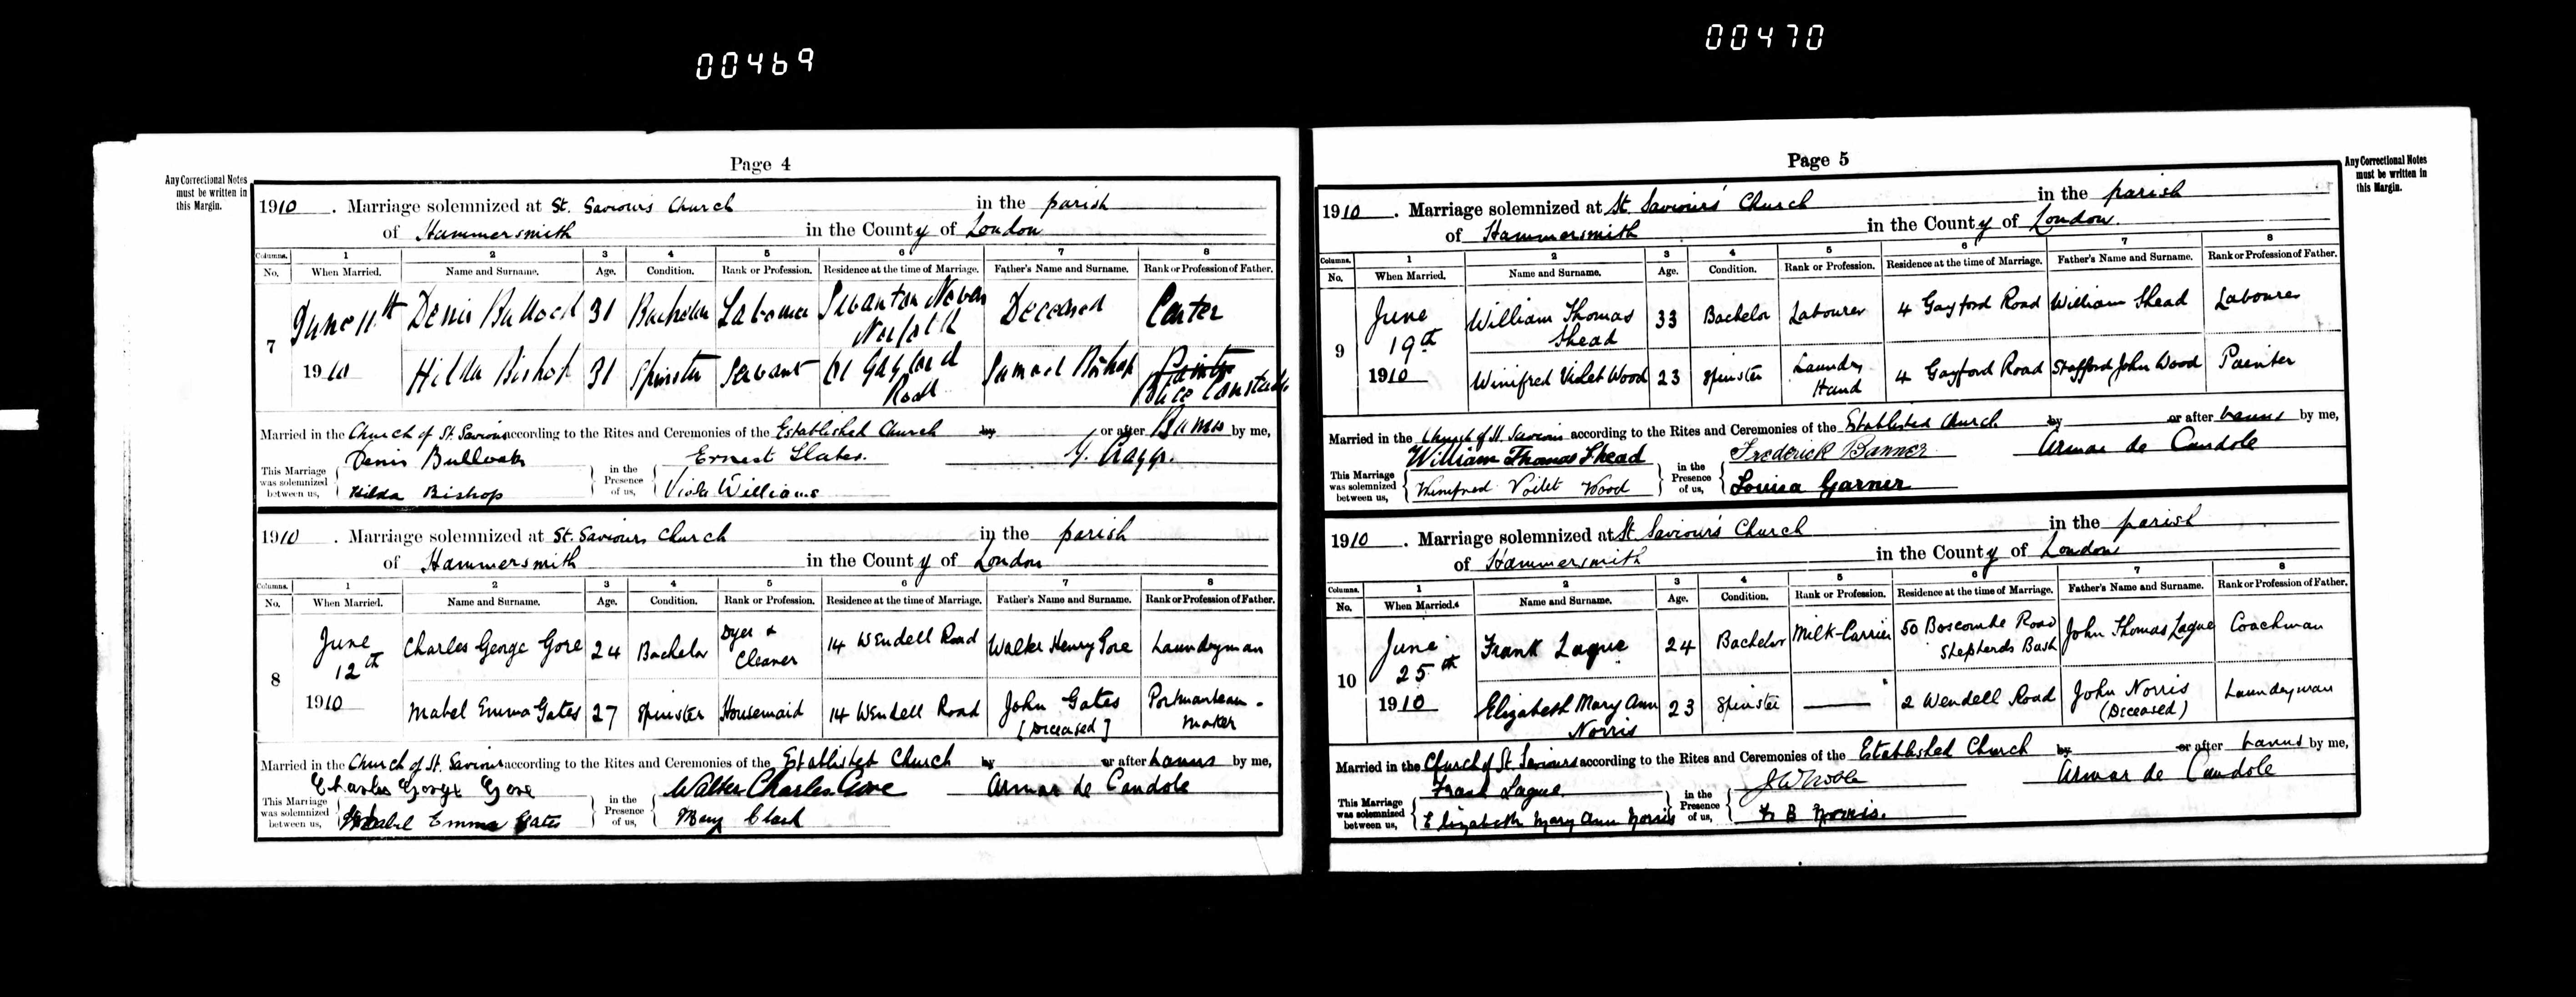 00469
00470
Page 4
Any Correctional Notes
must be written in
this Margin.
1910 . Marriage solemnized at St. Saviour's Church in the parish
of Hammersmith in the County of London
Columns. 1 2 3 4 5 6 7 8
No. When Married. Name and Surname. Age. Condition. Rank or Profession. Residence at the time of Marriage. Father's Name and Surname. Rank or Profession of Father.
7 June 11th Denis Bullock 31 Bachelor Labourer Swanton Novers Norfolk Deceased Carter
1910 Hilda Bishop 31 Spinster Servant 61 Gayford Road Samuel Bishop Painter Police Constable
Married in the Church of St. Saviour according to the Rites and Ceremonies of the Established Church by or after Banns by me,
Denis Bullock Ernest Slater.
This Marriage was solemnized between us, in the Presence of us,
Hilda Bishop Viola Williams
1910 . Marriage solemnized at St. Saviours Church in the parish
of Hammersmith in the County of London
Columns. 1 2 3 4 5 6 7 8
No. When Married. Name and Surname. Age. Condition. Rank or Profession. Residence at the time of Marriage. Father's Name and Surname. Rank or Profession of Father.
8 June 12th Charles George Gore 24 Bachelor Dyer & Cleaner 14 Wendell Road Walter Henry Gore Laundryman
1910 Mabel Emma Gates 27 Spinster Housemaid 14 Wendell Road John Gates [Deceased] Portmanteau-maker
Married in the Church of St. Saviour according to the Rites and Ceremonies of the Established Church by or after banns by me,
Charles George Gore Walter Charles Gore Armar de Candole
This Marriage was solemnized between us, in the Presence of us,
Mabel Emma Gates Mary Clark
Page 5
Any Correctional Notes
must be written in
this Margin.
1910 . Marriage solemnized at St. Saviour's Church in the parish
of Hammersmith in the County of London.
Columns. 1 2 3 4 5 6 7 8
No. When Married. Name and Surname. Age. Condition. Rank or Profession. Residence at the time of Marriage. Father's Name and Surname. Rank or Profession of Father.
9 June 19th William Thomas Shead 33 Bachelor Labourer 4 Gayford Road William Shead Labourer
1910 Winifred Violet Wood 23 Spinster Laundry Hand 4 Gayford Road Stafford John Wood Painter
Married in the Church of St. Saviour according to the Rites and Ceremonies of the Established Church by or after banns by me,
William Thomas Shead Frederick Banner Armar de Candole
This Marriage was solemnized between us, in the Presence of us,
Winifred Voilet Wood Louisa Garner
1910 . Marriage solemnized at St Saviour's Church in the parish
of Hammersmith in the County of London
Columns. 1 2 3 4 5 6 7 8
No. When Married. Name and Surname. Age. Condition. Rank or Profession. Residence at the time of Marriage. Father's Name and Surname. Rank or Profession of Father.
10 June 25th Frank Lague 24 Bachelor Milk-Carrier 50 Boscombe Road Shepherds Bush John Thomas Lague Coachman
1910 Elizabeth Mary Ann Norris 23 Spinster — 2 Wendell Road John Norris (Deceased) Laundryman
Married in the Church of St. Saviours according to the Rites and Ceremonies of the Established Church by or after banns by me,
Frank Lague Armar de Candole
This Marriage was solemnized between us, in the Presence of us,
Elizabeth Mary Ann Norris B Norris.